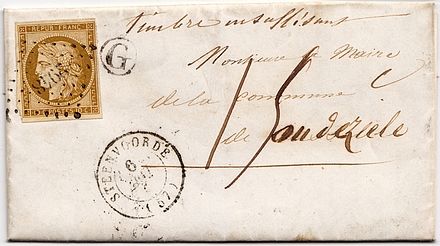 REPUB. FRANC.
10 POSTES 10
G
timbre insuffisant
Monsieur le Maire
de la commune
de Oudezeele
15
STEENVOORDE
6
(57)